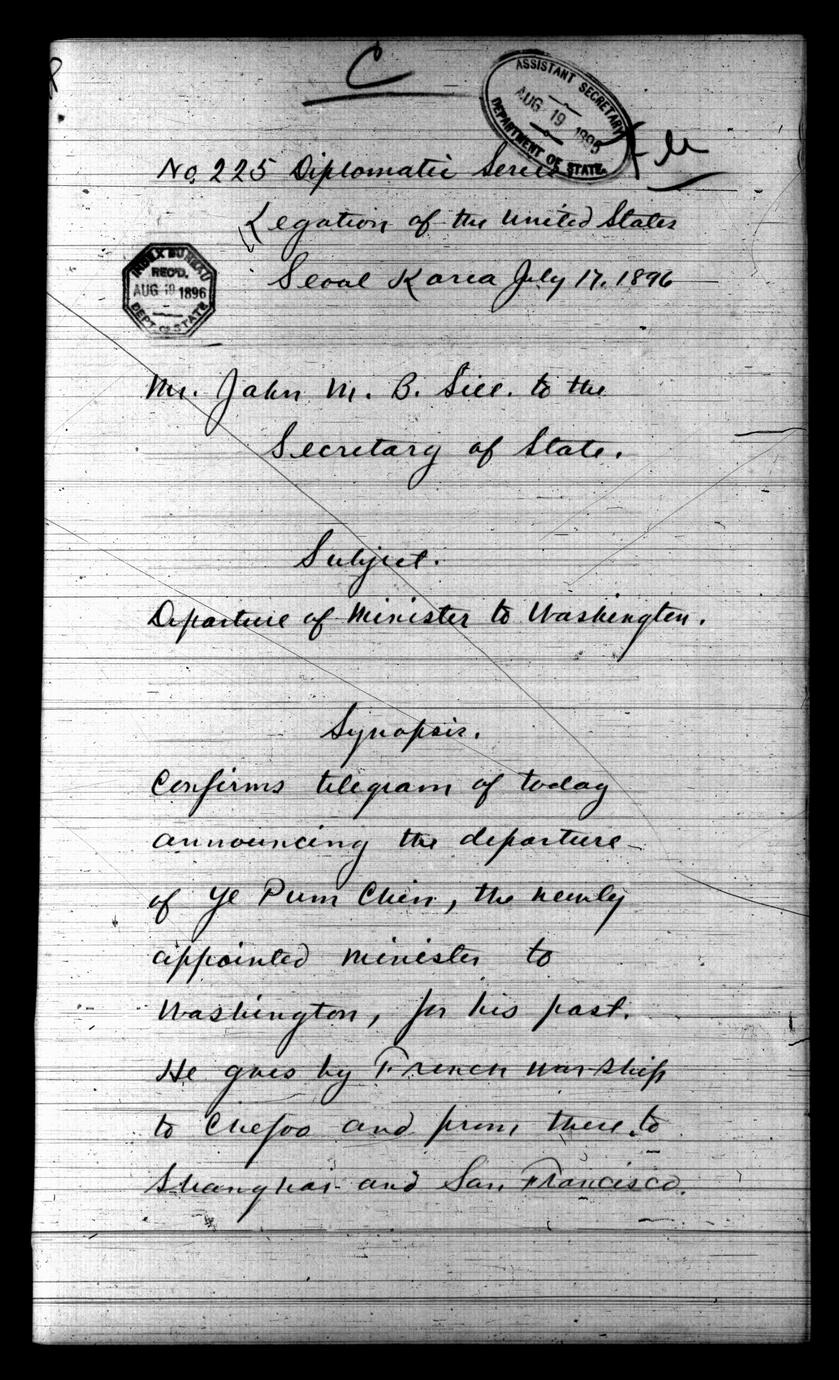 C
ASSISTANT SECRETARY
AUG 19 1896
DEPARTMENT OF STATE.
No. 225 Diplomatic Series
Legation of the United States
Seoul Korea July 17, 1896
INDEX BUREAU
REC'D.
AUG 19 1896
DEPT. OF STATE
Mr. John M. B. Sill. to the
Secretary of State.
Subject.
Departure of Minister to Washington.
Synopsis.
Confirms telegram of today
announcing the departure
of Ye Pum Chin, the newly
appointed Minister to
Washington, for his post.
He goes by French war-ship
to Chefoo and from there to
Shanghai and San Francisco.